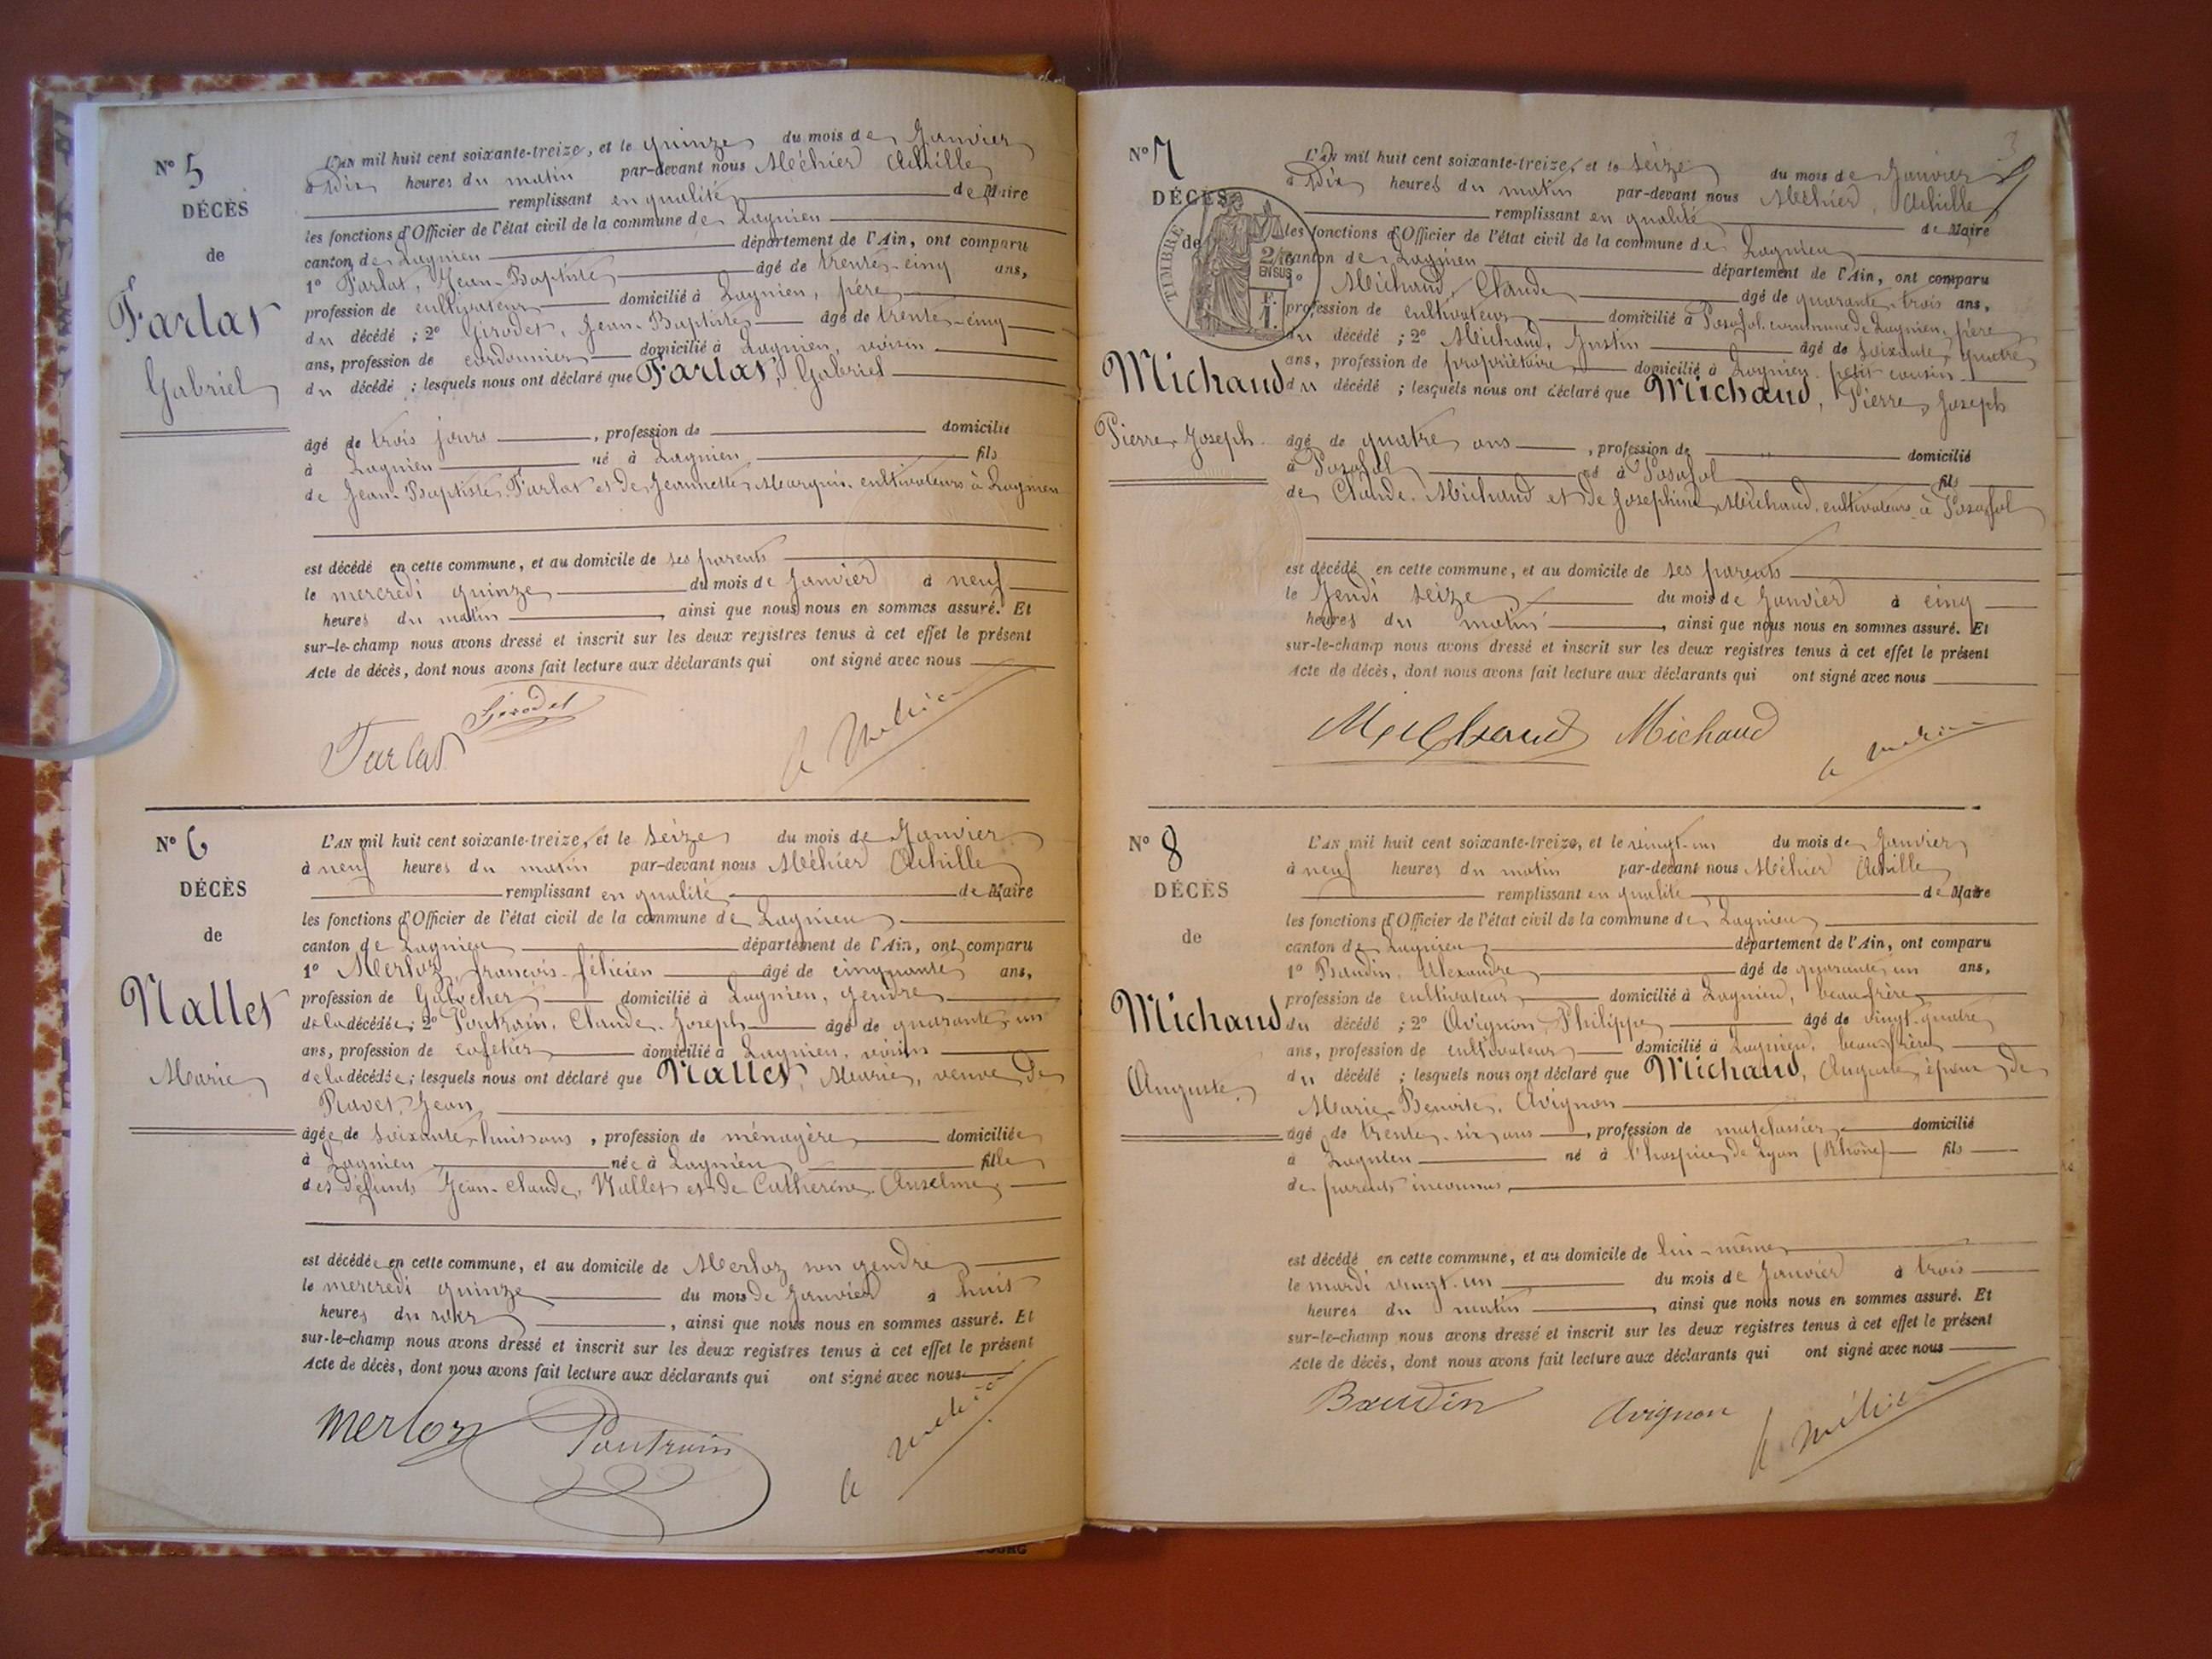 N° 5
DÉCÈS
de
Farlat
Gabriel
L'AN mil huit cent soixante-treize, et le quinze du mois de Janvier
à Dix heures du matin par-devant nous Méhier Achille
remplissant en qualité de Maire
les fonctions d'Officier de l'état civil de la commune de Lagnieu
canton de Lagnieu département de l'Ain, ont comparu
1° Farlat, Jean-Baptiste âgé de trente-cinq ans,
profession de cultivateur domicilié à Lagnieu, père
du décédé ; 2° Girodet, Jean-Baptiste âgé de trente-cinq
ans, profession de cordonnier domicilié à Lagnieu, voisin
du décédé ; lesquels nous ont déclaré que Farlat, Gabriel
âgé de trois jours , profession de domicilié
à Lagnieu né à Lagnieu fils
de Jean-Baptiste Farlat et de Jeannette Marquis, cultivateurs à Lagnieu
est décédé en cette commune, et au domicile de ses parents
le mercredi quinze du mois de Janvier à neuf
heures du matin , ainsi que nous nous en sommes assuré. Et
sur-le-champ nous avons dressé et inscrit sur les deux registres tenus à cet effet le présent
Acte de décès, dont nous avons fait lecture aux déclarants qui ont signé avec nous
Girodet
Farlat
A Méhier
N° 6
DÉCÈS
de
Nallet
Marie
L'AN mil huit cent soixante-treize, et le seize du mois de Janvier
à neuf heures du matin par-devant nous Méhier Achille
remplissant en qualité de Maire
les fonctions d'Officier de l'état civil de la commune de Lagnieu
canton de Lagnieu département de l'Ain, ont comparu
1° Merloz, françois-félicien âgé de cinquante ans,
profession de Galocher domicilié à Lagnieu, gendre
de la décédée; 2° Poutrain, Claude-Joseph âgé de quarante-un
ans, profession de cafetier domicilié à Lagnieu, voisin
de la décédée; lesquels nous ont déclaré que Nallet, Marie, veuve de
Ravet, Jean
âgée de soixante-huit ans , profession de ménagère domiciliée
à Lagnieu née à Lagnieu fille
des défunts Jean-Claude Nallet et de Catherine Anselme
est décédée en cette commune, et au domicile de Merloz son gendre
le mercredi quinze du mois de Janvier à huit
heures du soir , ainsi que nous nous en sommes assuré. Et
sur-le-champ nous avons dressé et inscrit sur les deux registres tenus à cet effet le présent
Acte de décès, dont nous avons fait lecture aux déclarants qui ont signé avec nous
Merloz
Poutrain
A Méhier
3
N° 7
DÉCÈS
de
TIMBRE
2/10
EN SUS
F.
1.
Michaud
Pierre Joseph
L'AN mil huit cent soixante-treize, et le seize du mois de Janvier
à Dix heures du matin par-devant nous Méhier Achille
remplissant en qualité de Maire
les fonctions d'Officier de l'état civil de la commune de Lagnieu
canton de Lagnieu département de l'Ain, ont comparu
1° Michaud, Claude âgé de quarante-trois ans,
profession de cultivateur domicilié à Posafol commune de Lagnieu, père
du décédé ; 2° Michaud, Justin âgé de soixante-quatre
ans, profession de propriétaire domicilié à Lagnieu petit cousin
du décédé ; lesquels nous ont déclaré que Michaud, Pierre, Joseph
âgé de quatre ans , profession de domicilié
à Posafol né à Posafol fils
de Claude Michaud et de Josephine Michaud, cultivateurs à Posafol
est décédé en cette commune, et au domicile de ses parents
le Jeudi seize du mois de Janvier à cinq
heures du matin , ainsi que nous nous en sommes assuré. Et
sur-le-champ nous avons dressé et inscrit sur les deux registres tenus à cet effet le présent
Acte de décès, dont nous avons fait lecture aux déclarants qui ont signé avec nous
Michaud Michaud
A Méhier
N° 8
DÉCÈS
de
Michaud
Auguste
L'AN mil huit cent soixante-treize, et le vingt-un du mois de Janvier
à neuf heures du matin par-devant nous Méhier Achille
remplissant en qualité de Maire
les fonctions d'Officier de l'état civil de la commune de Lagnieu
canton de Lagnieu département de l'Ain, ont comparu
1° Baudin, Alexandre âgé de quarante-un ans,
profession de cultivateur domicilié à Lagnieu, beau frère
du décédé ; 2° Avignon, Philippe âgé de vingt-quatre
ans, profession de cultivateur domicilié à Lagnieu, beau frère
du décédé ; lesquels nous ont déclaré que Michaud, Auguste, époux de
Marie-Benoite Avignon
âgé de trente-six ans , profession de matelassier domicilié
à Lagnieu né à l'hospice de Lyon (Rhône) fils
de parents inconnus
est décédé en cette commune, et au domicile de lui-même
le mardi vingt-un du mois de Janvier à trois
heures du matin , ainsi que nous nous en sommes assuré. Et
sur-le-champ nous avons dressé et inscrit sur les deux registres tenus à cet effet le présent
Acte de décès, dont nous avons fait lecture aux déclarants qui ont signé avec nous
Baudin
Avignon
A Méhier